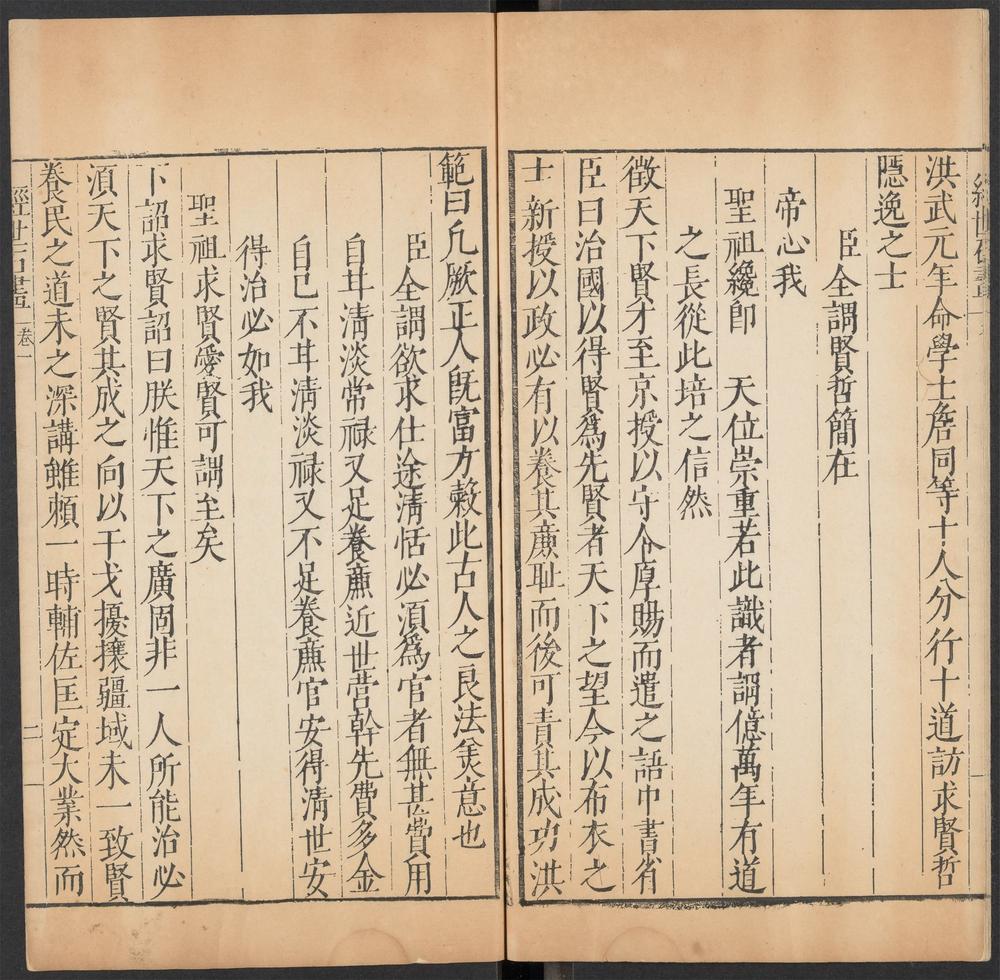 洪武元年命學士詹同等十人分行十道訪求賢哲
隱逸之士
臣全謂賢哲簡在
帝心我
聖祖纔卽　天位崇重若此識者謂億萬年有道
之長從此培之信然
徵天下賢才至京授以守令厚賜而遣之語中書省
臣曰治國以得賢爲先賢者天下之望今以布衣之
士新授以政必有以養其廉耻而後可責其成功洪
範曰凡厥正人旣富方榖此古人之良法美意也
臣全謂欲求仕途淸恬必須爲官者無甚費用
自甘淸淡常祿又足養廉近世營幹先費多金
自己不甘淸淡祿又不足養廉官安得淸世安
得治必如我
聖祖求賢愛賢可謂至矣
下詔求賢詔曰朕惟天下之廣固非一人所能治必
須天下之賢共成之向以干戈擾攘疆域未一致賢
養民之道未之深講雖賴一時輔佐匡定大業然而
經世石畫　卷一
二